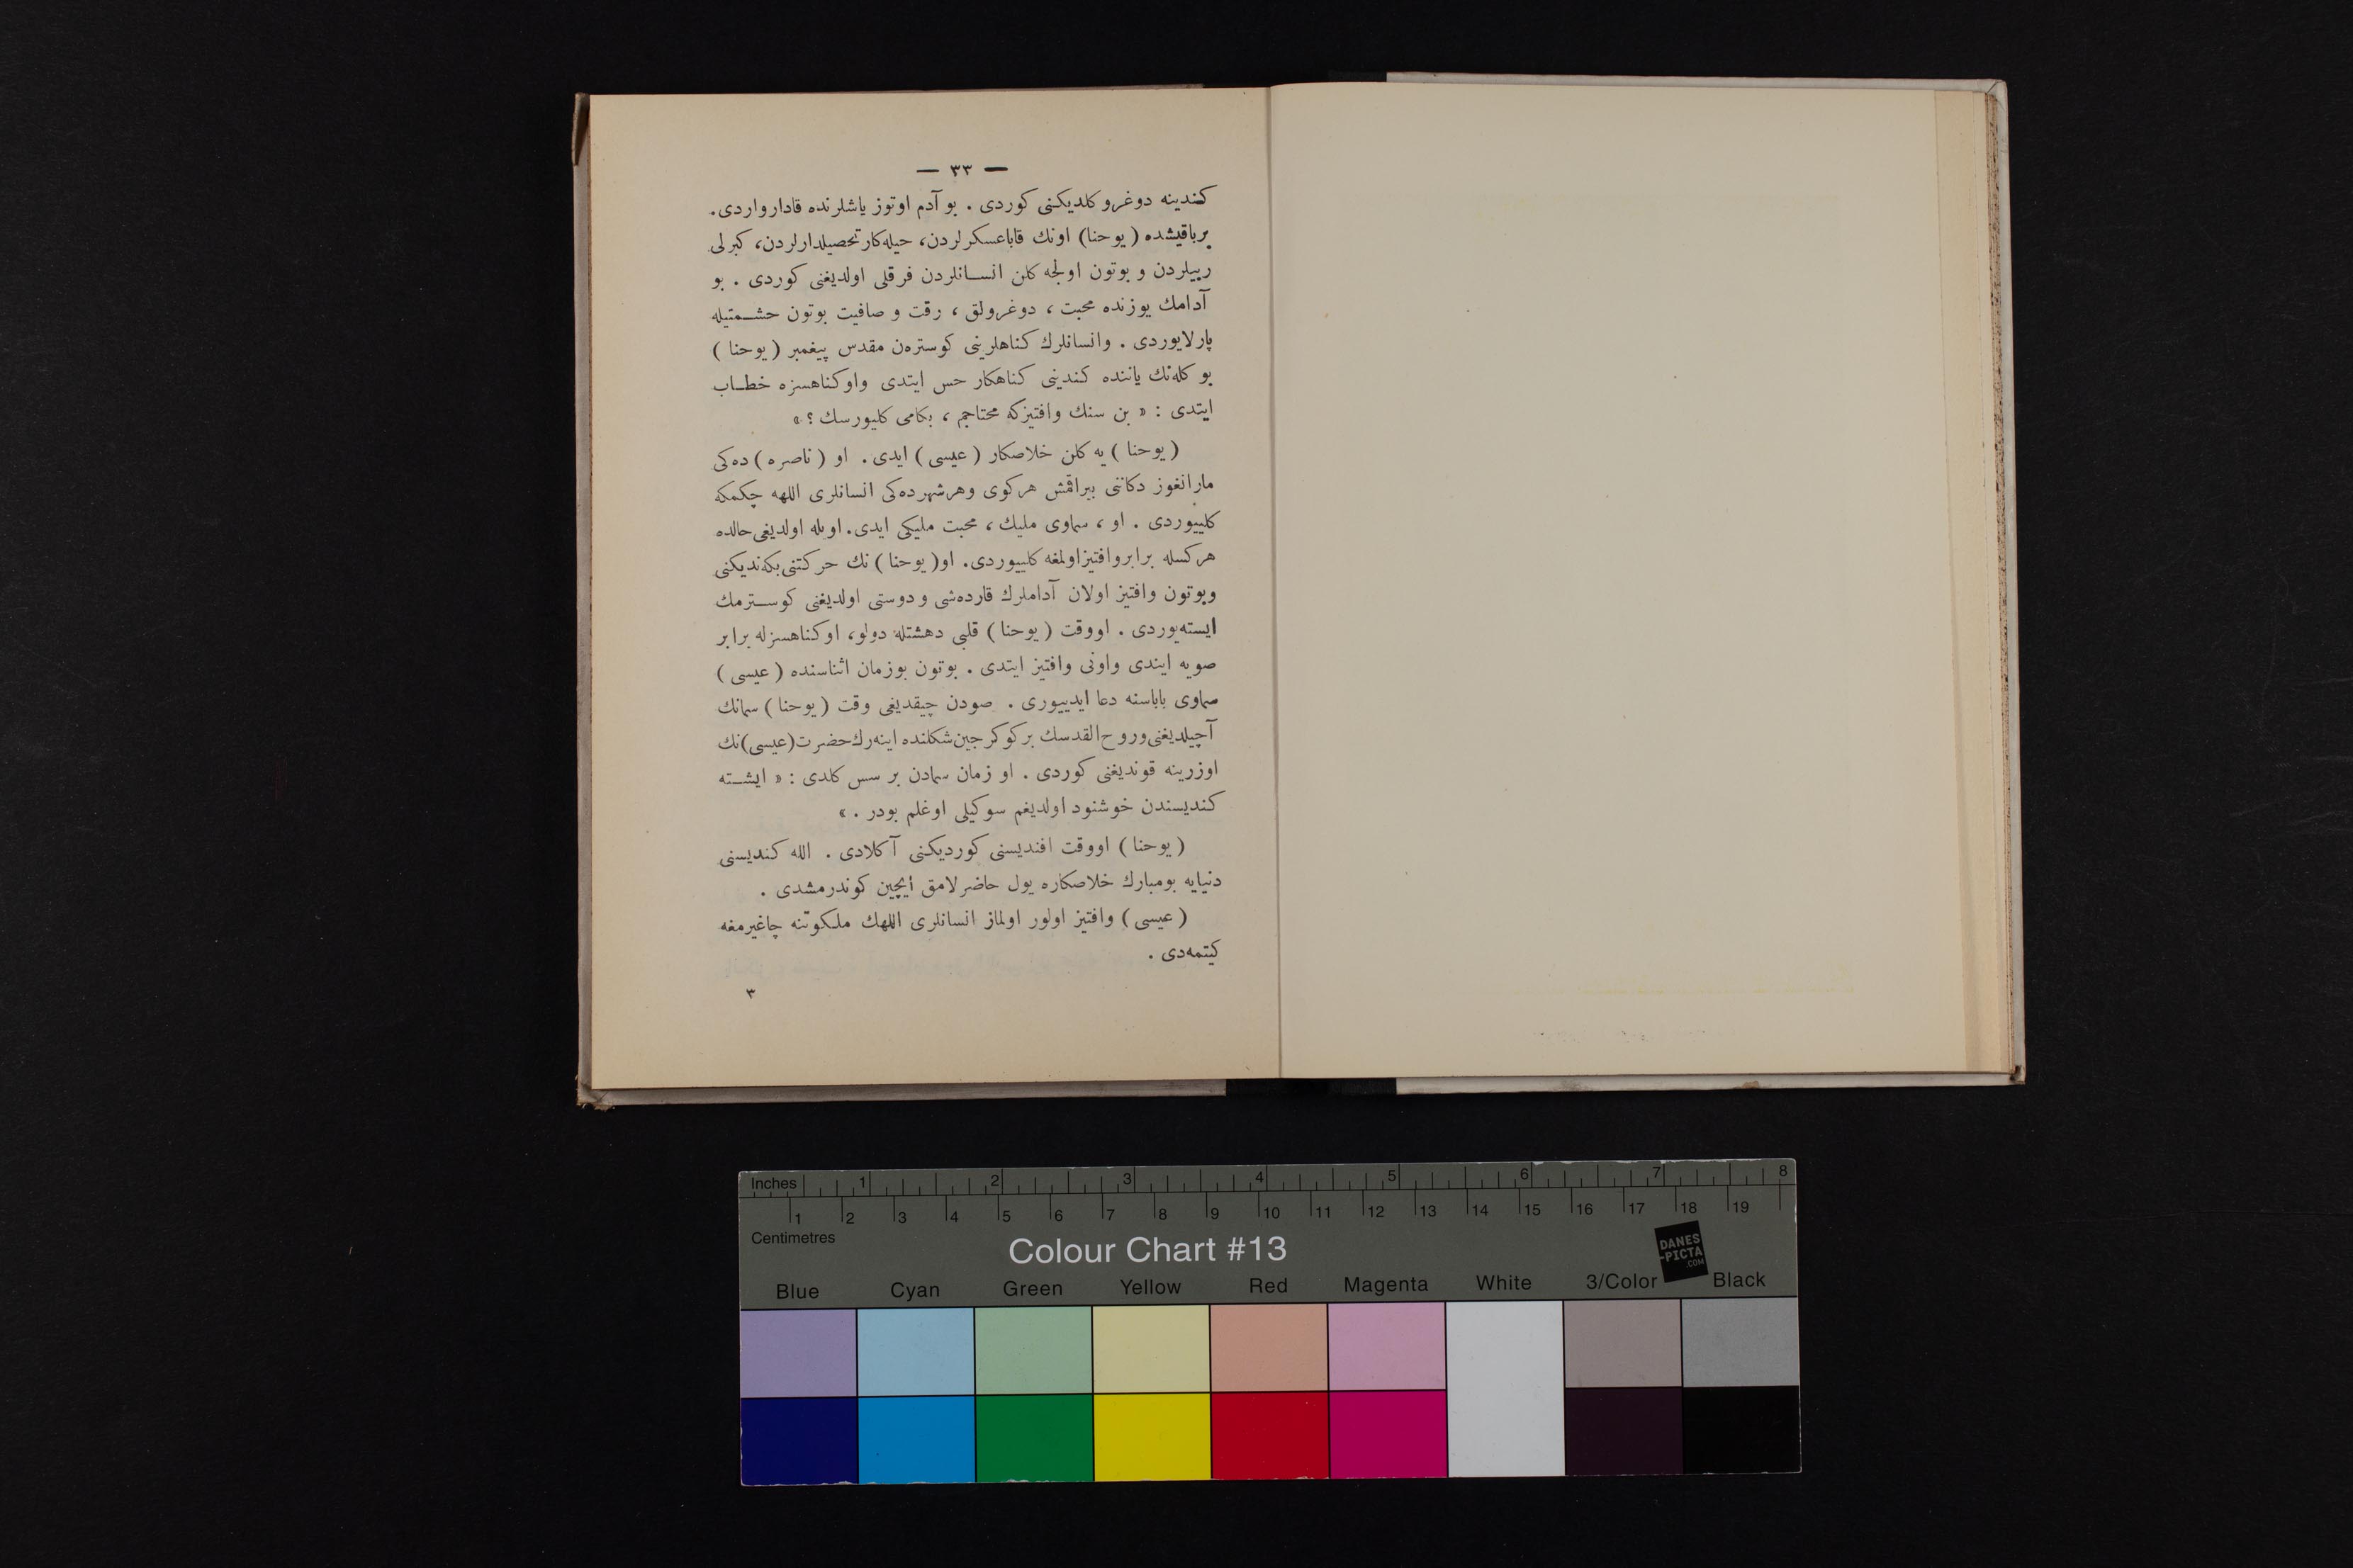 — ٣٣ —
كندينه دوغرو كلديكنى كوردى . بو آدم اوتوز ياشلرنده قادار واردى .
برباقيشده ( يوحنا ) اونك قاباعسكرلردن، حيله‌كار تحصيلدارلردن، كبرلى
ربيلردن و بوتون اولجه كلن انسانلردن فرقلى اولديغنى كوردى . بو
آدامك يوزنده محبت ، دوغرولق ، رقت و صافيت بوتون حشمتيله
پارلايوردى . وانسانلرك كناهلرينى كوستره‌ن مقدس پيغمبر ( يوحنا )
بو كله‌نك ياننده كندينى كناهكار حس ايتدى واوكناهسزه خطاب
ايتدى : « بن سنك وافتيزكه محتاجم ، بكامى كليورسك ؟ »
( يوحنا ) يه كلن خلاصكار ( عيسى ) ايدى . او ( ناصره ) ده‌كى
مارانغوز دكاننى بيراقمش هركوى وهرشهرده‌كى انسانلرى اللهه چكمكه
كلييوردى . او ، سماوى مليك ، محبت مليكى ايدى . اويله اولديغى حالده
هركسله برابر وافتيزاولمغه كلييوردى . او ( يوحنا ) نك حركتنى بكه‌نديكنى
وبوتون وافتيز اولان آداملرك قارده‌شى و دوستى اولديغنى كوسترمك
ايسته‌يوردى . اووقت ( يوحنا ) قلبى دهشتله دولو، اوكناهسزله برابر
صويه ايندى واونى وافتيز ايتدى . بوتون بوزمان اثناسنده ( عيسى )
سماوى باباسنه دعا ايدييورى . صودن چيقديغى وقت ( يوحنا ) سمانك
آچيلديغنى وروح‌القدسك بر كوكرجين شكلنده اينه‌رك حضرت ( عيسى ) نك
اوزرينه قونديغنى كوردى . او زمان سمادن بر سس كلدى : « ايشته
كنديسندن خوشنود اولديغم سوكيلى اوغلم بودر . »
( يوحنا ) اووقت افنديسنى كورديكنى آكلادى . الله كنديسنى
دنيايه بومبارك خلاصكاره يول حاضرلامق ايچين كوندرمشدى .
( عيسى ) وافتيز اولور اولماز انسانلرى اللهك ملكوتنه چاغيرمغه
كيتمه‌دى .
٣
Inches 1 2 3 4 5 6 7 8
1 2 3 4 5 6 7 8 9 10 11 12 13 14 15 16 17 18 19
Centimetres
Colour Chart #13
DANES
-PICTA
.COM
Blue Cyan Green Yellow Red Magenta White 3/Color Black